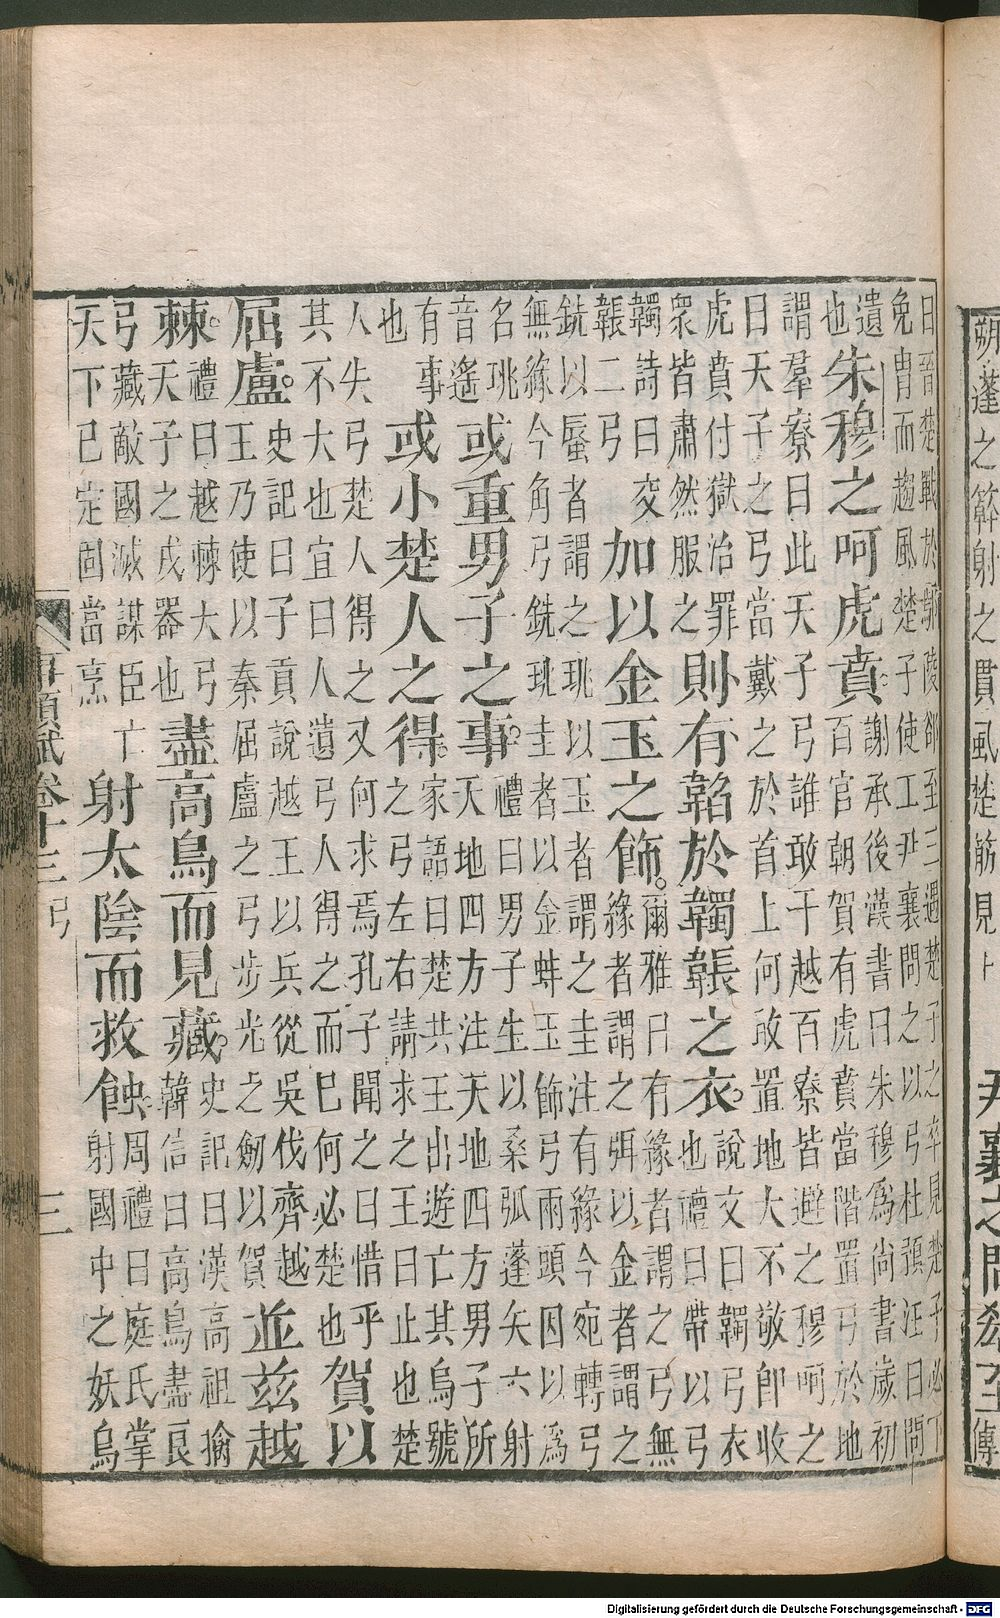 朔蓬之簳射之貫風楚筋見上
尹襄之問
日晉楚戰於鄢陵郤至三遇楚子之卒見楚子必下
免冑而趨風楚子使工尹襄問之以弓杜預注曰問
遺
也
朱穆之呵虎賁。
謝承後漢書曰朱穆爲尚書歲初
百官朝賀有虎賁當階置弓於地
謂羣寮曰此天子弓誰敢干越百寮皆避之穆呵之
曰天子之弓當戴之於首上何敢置地大不敬即收
虎賁付獄治罪
衆皆肅然服之
則有韜於韣韔之衣。
說文曰韣弓衣
也禮曰帶以弓
韣詩曰交
韔二弓
加以金玉之飾。
爾雅曰有緣者謂之弓無
緣者謂之弭以金者謂之
銑以蜃者謂之珧以玉者謂之圭注有緣今宛轉弓
無緣今角弓銑珧圭者以金蚌玉飾弓兩頭因以爲
名珧
音遙
或重男子之事。
禮曰男子生以桑弧蓬矢六射
天地四方注天地四方男子所
有事
也
或小楚人之得。
家語曰楚共王出遊亡其烏號
之弓左右請求之王曰止也楚
人失弓楚人得之又何求焉孔子聞之曰惜乎
其不大也宜曰人遺弓人得之而已何必楚也
賀以
屈盧。
史記曰子貢說越王以兵從吳伐齊越
王乃使以秦屈盧之弓步光之劒以賀
並茲越
棘。
禮曰越棘大弓
天子之戎器也
盡高鳥而見藏。
史記曰漢高祖擒
韓信曰高鳥盡良
弓藏敵國滅謀臣亡
天下已定固當烹
射太陰而救蝕。
周禮曰庭氏掌
射國中之妖鳥
事類賦卷十三 弓 三
Digitalisierung gefördert durch die Deutsche Forschungsgemeinschaft - DFG